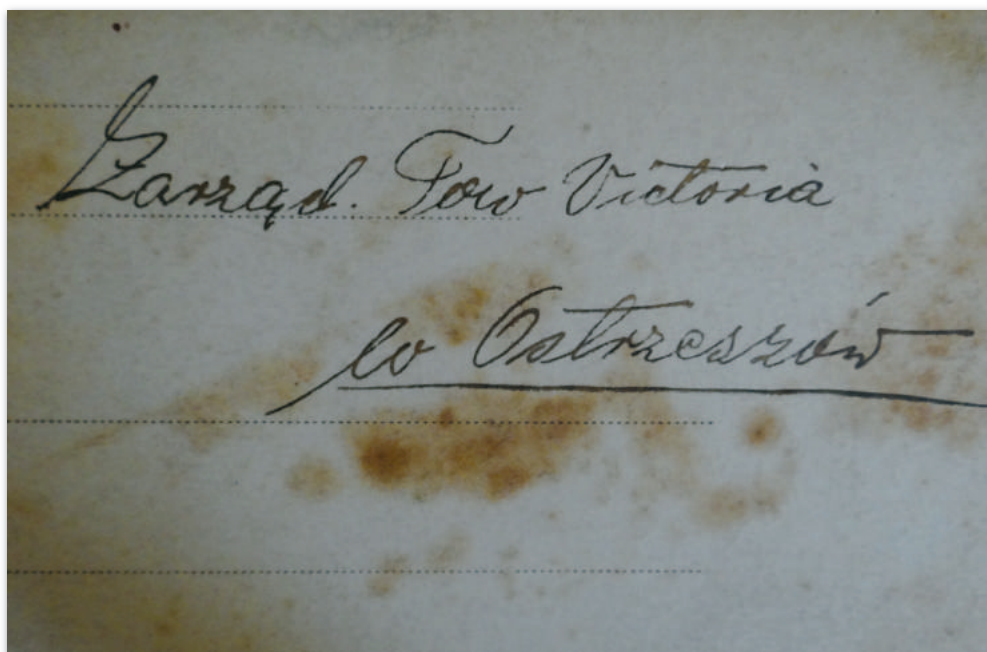 Zarząd. Tow Victoria
w Ostrzeszów